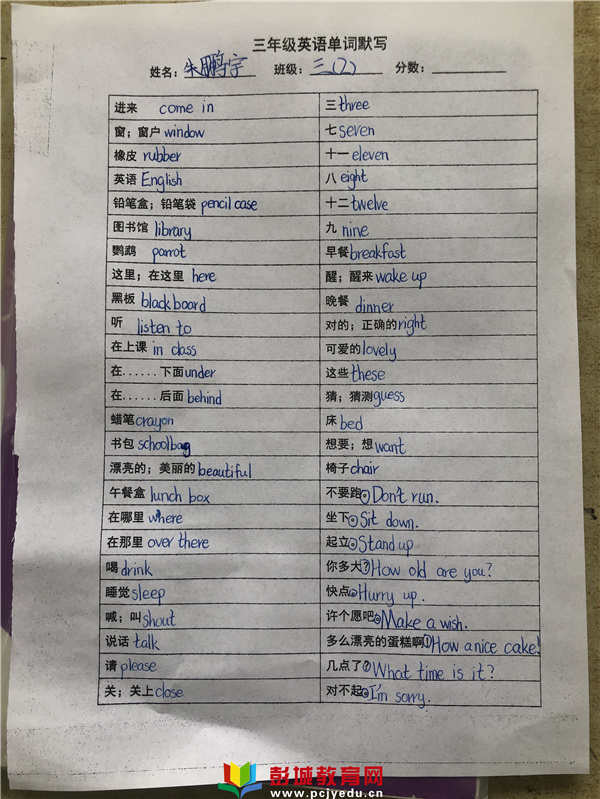 三年级英语单词默写
姓名：朱鹏宇 班级：三(2) 分数：
进来 come in 三 three
窗；窗户 window 七 seven
橡皮 rubber 十一 eleven
英语 English 八 eight
铅笔盒；铅笔袋 pencil case 十二 twelve
图书馆 library 九 nine
鹦鹉 parrot 早餐 breakfast
这里；在这里 here 醒；醒来 wake up
黑板 blackboard 晚餐 dinner
听 listen to 对的；正确的 right
在上课 in class 可爱的 lovely
在......下面 under 这些 these
在......后面 behind 猜；猜测 guess
蜡笔 crayon 床 bed
书包 schoolbag 想要；想 want
漂亮的；美丽的 beautiful 椅子 chair
午餐盒 lunch box 不要跑。Don't run.
在哪里 where 坐下。Sit down.
在那里 over there 起立。Stand up
喝 drink 你多大？How old are you?
睡觉 sleep 快点。Hurry up.
喊；叫 shout 许个愿吧。Make a wish.
说话 talk 多么漂亮的蛋糕啊！How a nice cake!
请 please 几点了？What time is it?
关；关上 close 对不起。I'm sorry.
彭城教育网
www.pcjyedu.cn